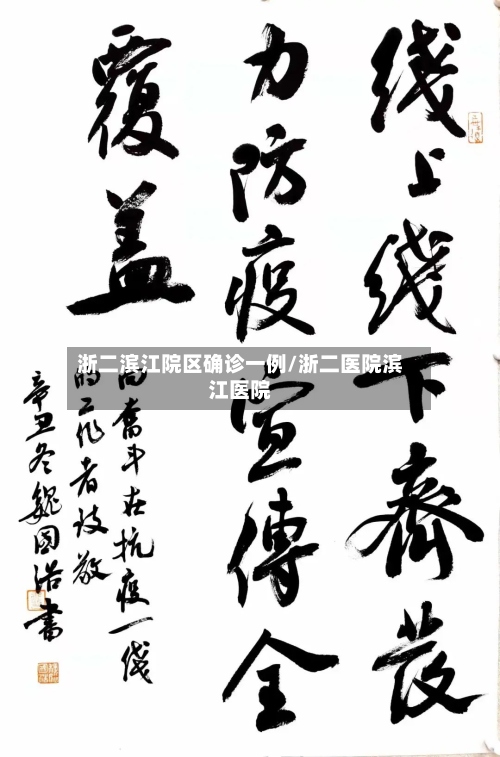 线上线下齊發
力防疫宣傳全
覆盖
向奮斗在抗疫一线
的工作者致敬
辛丑冬魏国浩書
浙二滨江院区确诊一例/浙二医院滨
江医院